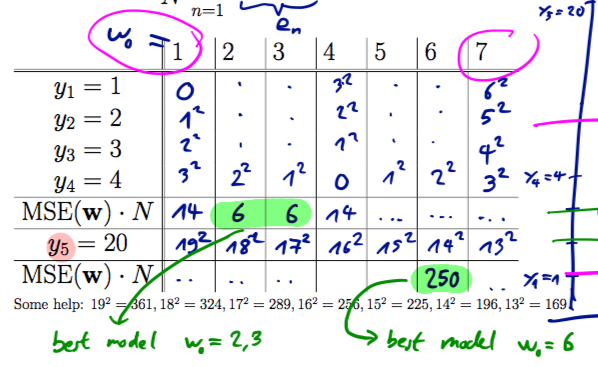 N n=1
eₙ
w₀ = 1 2 3 4 5 6 7
y₁ = 1 0 · · 3² · · 6²
y₂ = 2 1² · · 2² · · 5²
y₃ = 3 2² · · 1² · · 4²
y₄ = 4 3² 2² 1² 0 1² 2² 3²
MSE(w) · N 14 6 6 14 ... ... ...
y₅ = 20 19² 18² 17² 16² 15² 14² 13²
MSE(w) · N .. .. .. 250 ..
Some help: 19² = 361, 18² = 324, 17² = 289, 16² = 256, 15² = 225, 14² = 196, 13² = 169.
best model w₀ = 2,3
best model w₀ = 6
y₅ = 20
y₄ = 4
y₁ = 1